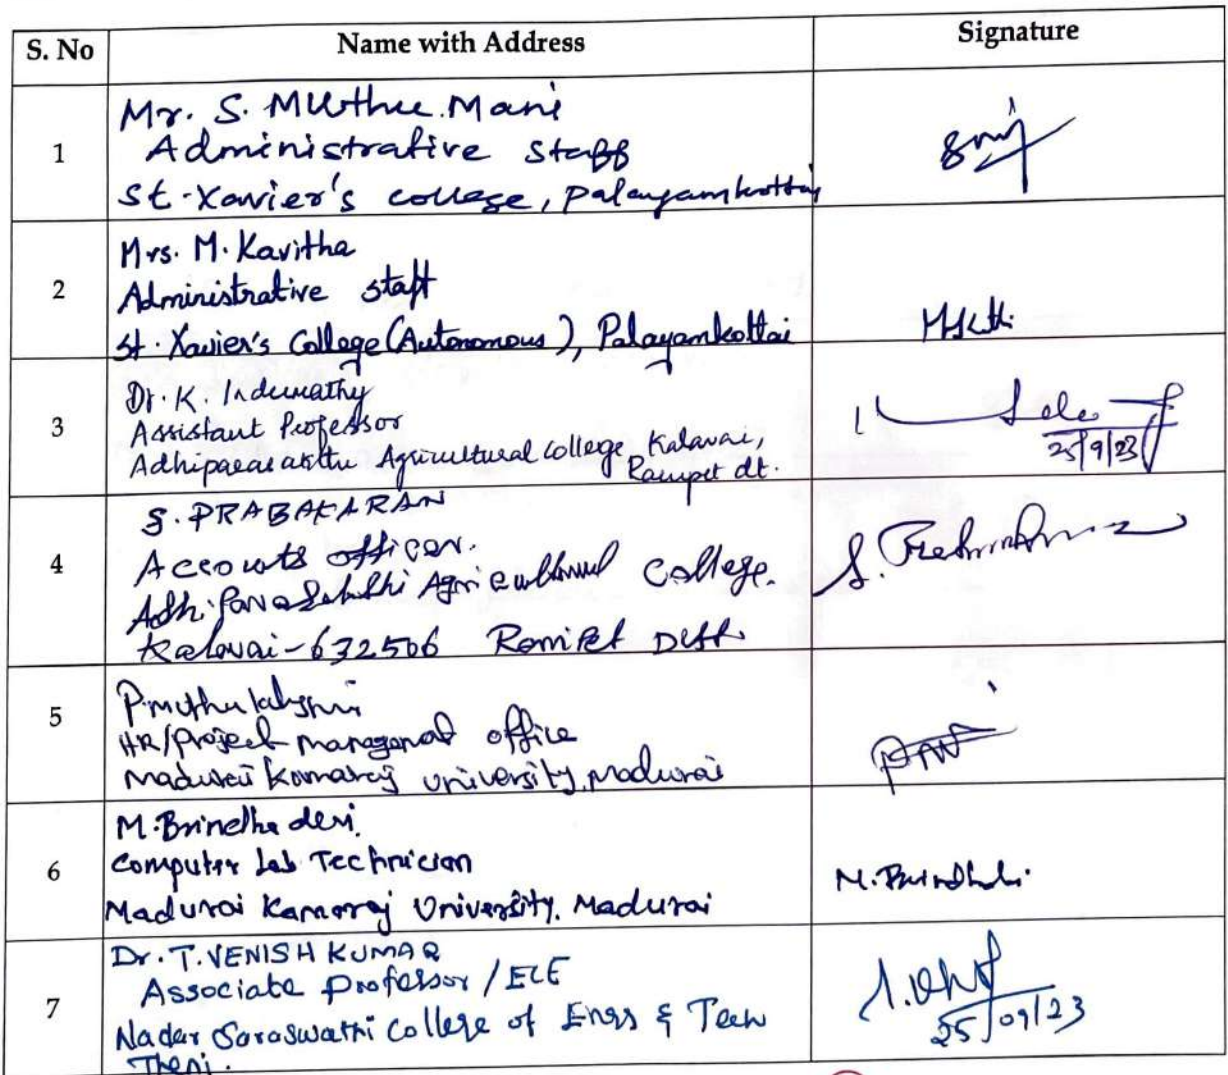 S. No Name with Address Signature
1
Mr. S. Muthu Mani
Administrative Staff
St. Xavier's College, Palayamkottai
2
Mrs. M. Kavitha
Administrative staff
St. Xavier's College (Autonomous), Palayamkottai
3
Dr. K. Indumathy
Assistant Professor
Adhiparasakthi Agricultural College, Kalavai,
Ranipet dt.
25/9/23
4
S. PRABAKARAN
Accounts officer.
Adhiparasakthi Agricultural College.
Kalavai-632506 Ranipet Distt.
5
P. Muthulakshmi
HR/Project Management office
Madurai Kamaraj University, Madurai
6
M. Brindha devi.
Computer Lab Technician
Madurai Kamaraj University, Madurai
7
Dr. T. VENISH KUMAR
Associate Professor / ECE
Nadar Saraswathi College of Engg & Tech
Theni.
25/09/23